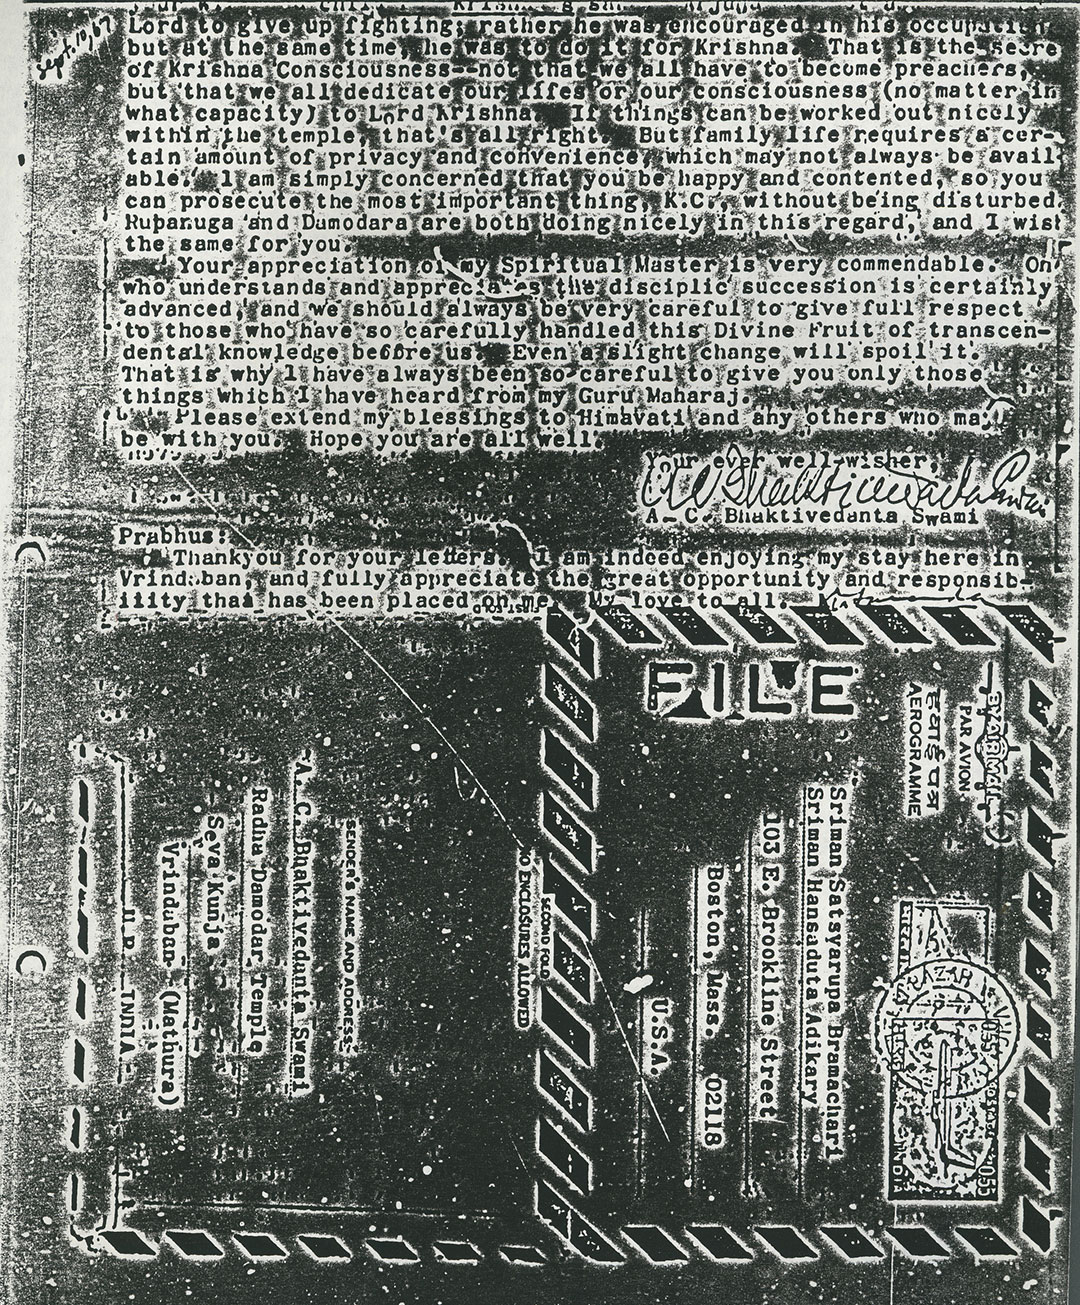 Sept. 10, 67
Lord to give up fighting; rather he was encouraged in his occupation
but at the same time, he was to do it for Krishna. That is the secre
of Krishna Consciousness--not that we all have to become preachers,
but that we all dedicate our lifes or our consciousness (no matter in
what capacity) to Lord Krishna. If things can be worked out nicely
within the temple, that's all right. But family life requires a cer-
tain amount of privacy and convenience, which may not always be avail
able. I am simply concerned that you be happy and contented, so you
can prosecute the most important thing, K.C., without being disturbed.
Rupanuga and Damodara are both doing nicely in this regard, and I wish
the same for you.
Your appreciation of my Spiritual Master is very commendable. On
who understands and appreciates the disciplic succession is certainly
advanced, and we should always be very careful to give full respect
to those who have so carefully handled this Divine Fruit of transcen-
dental knowledge before us. Even a slight change will spoil it.
That is why I have always been so careful to give you only those
things which I have heard from my Guru Maharaj.
Please extend my blessings to Himavati and any others who may
be with you. Hope you are all well.
Your ever well-wisher,
A. C. Bhaktivedanta Swami
Prabhus:
Thankyou for your letters. I am indeed enjoying my stay here in
Vrindaban, and fully appreciate the great opportunity and responsib-
ility that has been placed on me. My love to all.
FILE
PAR AVION
हवाई पत्र
AEROGRAMME
Sriman Satsyarupa Bramachari
Sriman Hansaduta Adikary
103 E. Brookline Street
Boston, Mass. 02118
U.S.A.
SECOND FOLD
NO ENCLOSURES ALLOWED
SENDER'S NAME AND ADDRESS:
A. C. Bhaktivedanta Swami
Radha Damodar Temple
Seva Kunja
Vrindaban (Mathura)
U.P. INDIA